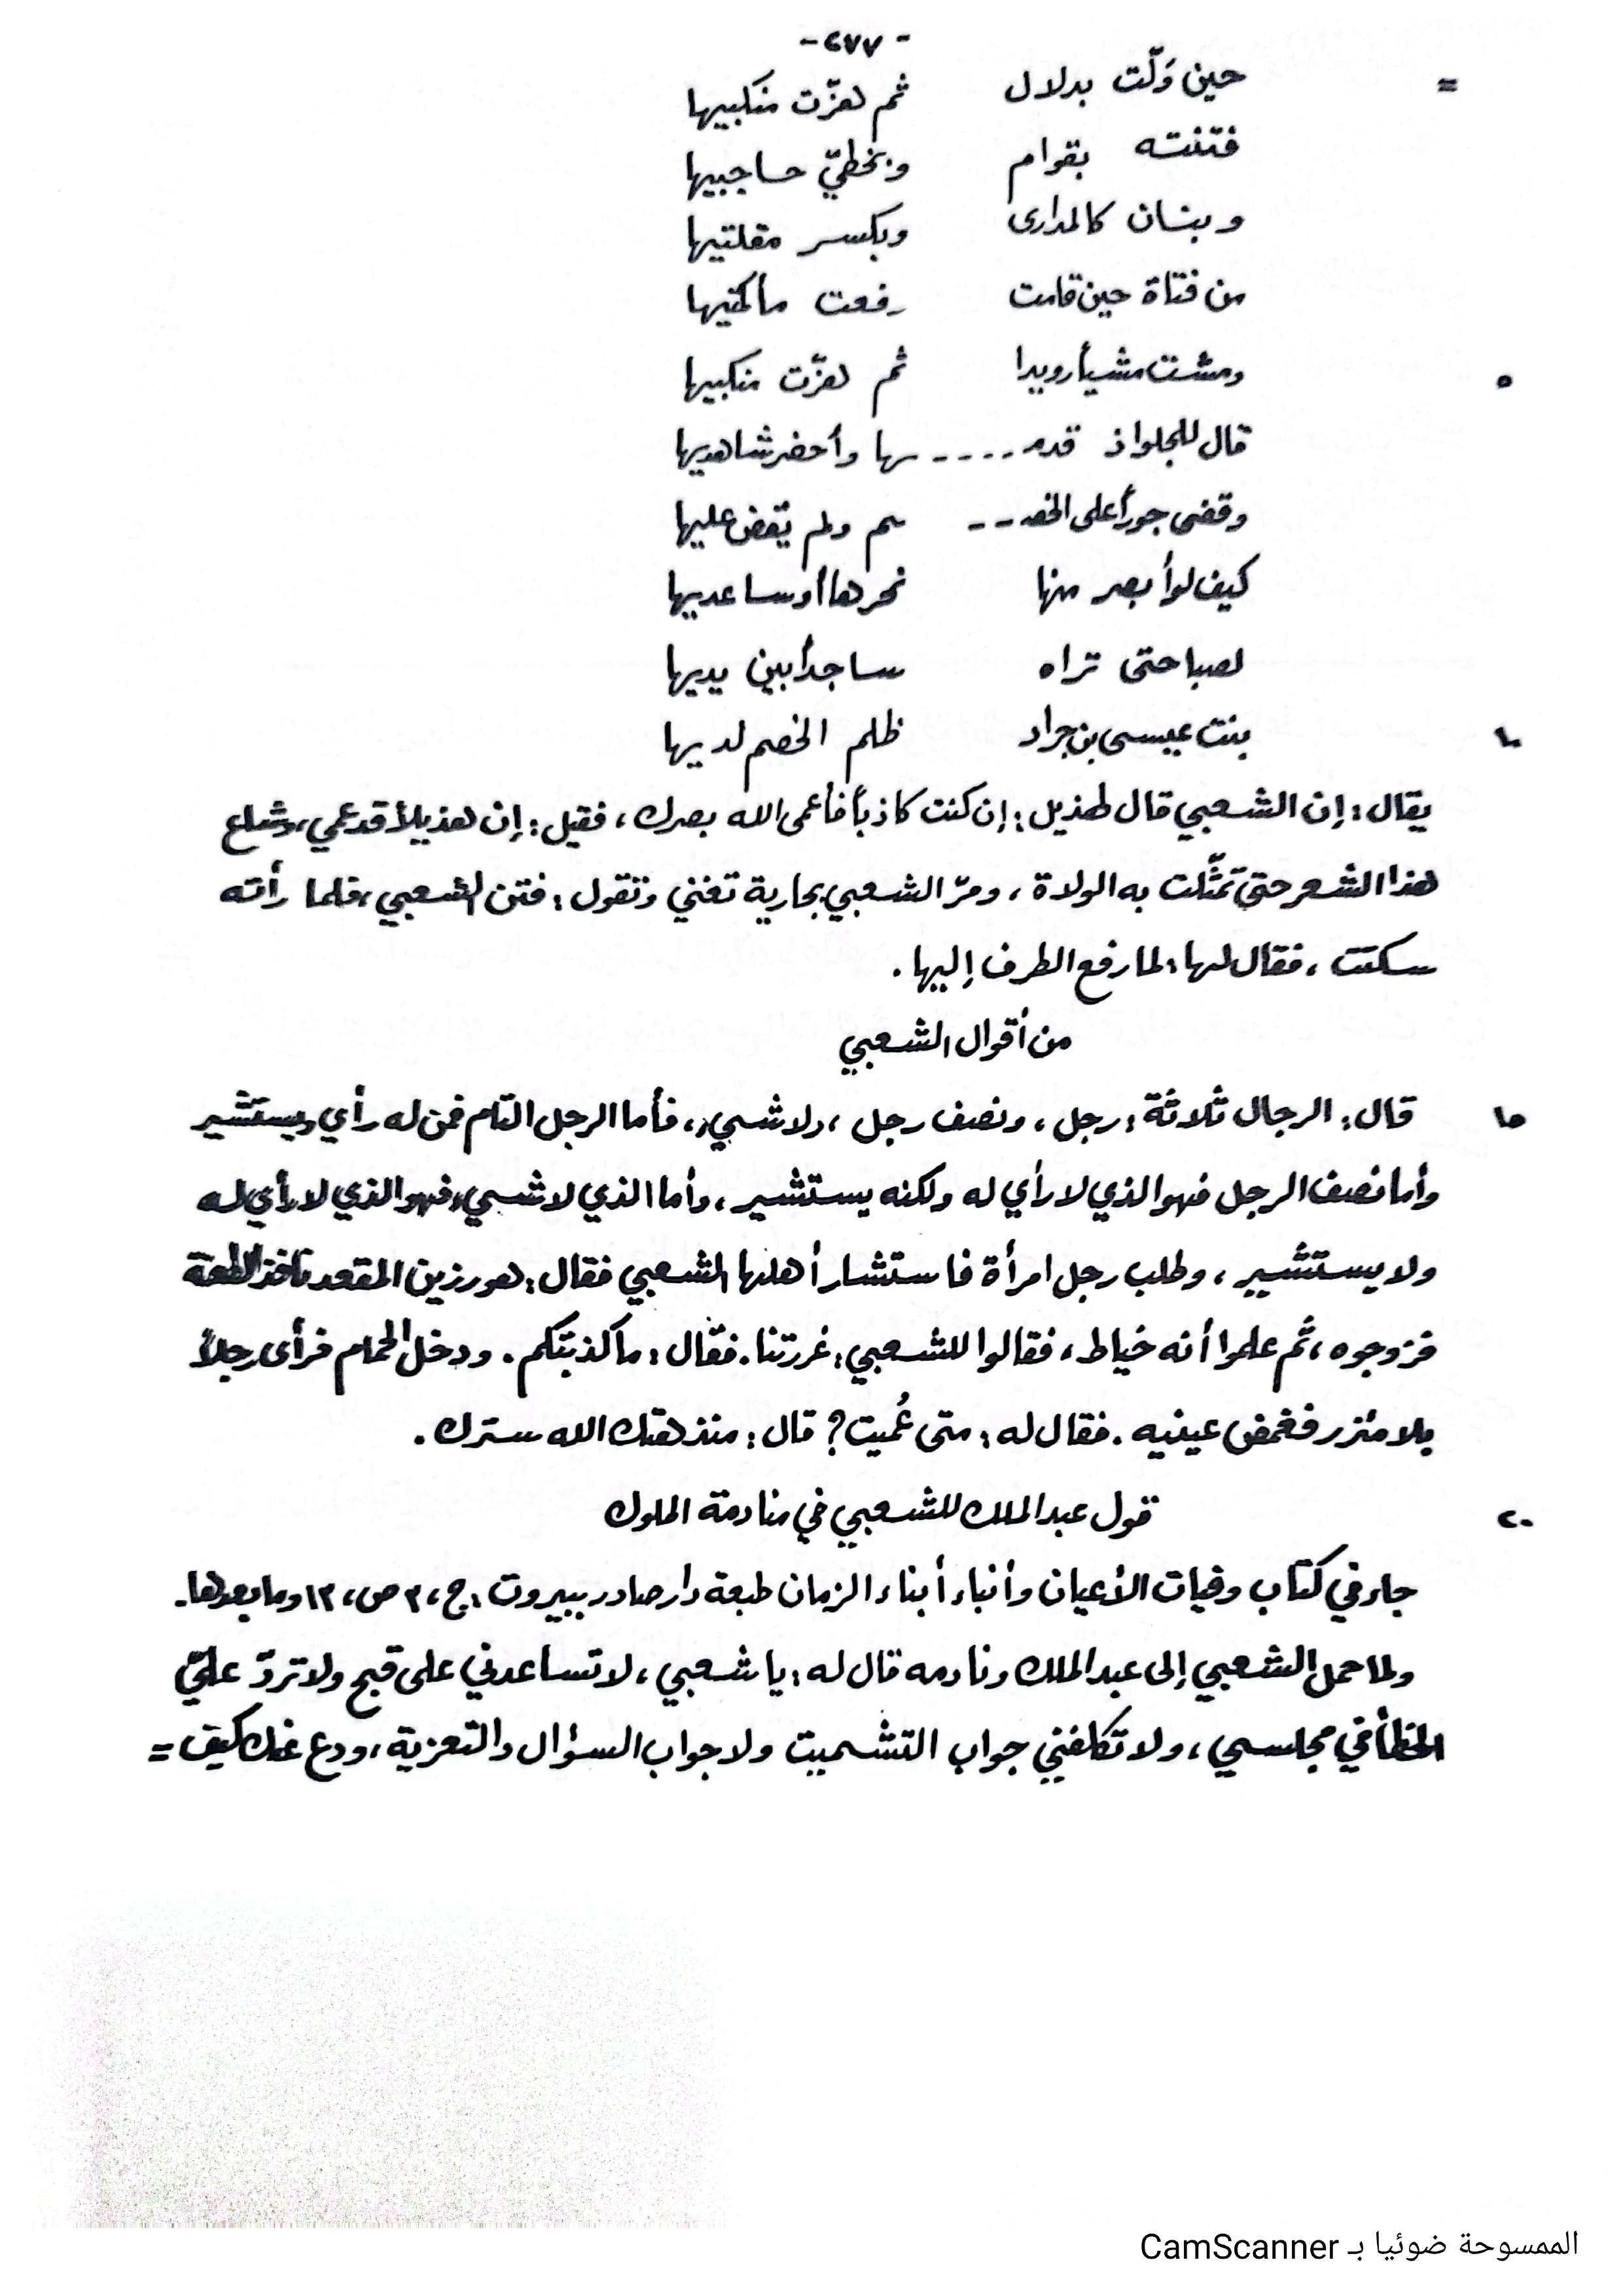 - ٢٧٧ -
= حين وَلّت بدلال ثم هزّت منكبيها
فتنته بقوام وبخطيّ حاجبيها
وبنان كالمدارى وبكسر مقلتيها
من فتاة حين قامت رفعت مأكمتيها
٥ ومشت مشيأ رويدا ثم هزّت منكبيها
قال للجلواذ قدمـ ---- ـها وأحضر شاهديها
وقضى جوراً على الخصـ -- ـم ولم يقض عليها
كيف لو أبصر منها نحرها أوساعديها
لصبا حتى تراه ساجداً بين يديها
١٠ بنت عيسى بن جراد ظلم الخصم لديها
يقال : إن الشعبي قال لهذيل : إن كنت كاذباً فأعمى الله بصرك ، فقيل : إن هذيلاً قد عمي ، وشاع
هذا الشعر حتى تمثّلت به الولاة ، ومرّ الشعبي بجارية تغني وتقول : فتن الشعبي ، فلما رأته
سكتت ، فقال لها : لما رفع الطرف إليها .
من أقوال الشعبي
١٥ قال : الرجال ثلاثة : رجل ، ونصف رجل ، ولاشيء ، فأما الرجل التام فمن له رأي ويستشير
وأما نصف الرجل فهو الذي لا رأي له ولكنه يستشير ، وأما الذي لاشيء فهو الذي لا رأي له
ولا يستشير ، وطلب رجل امرأة فاستشار أهلها الشعبي فقال : هو رزين المقعد نافذ الطعنة
فزوجوه ، ثم علموا أنه خياط ، فقالوا للشعبي : غررتنا . فقال : ما كذبتكم . ودخل الحمام فرأى رجلاً
بلا مئزر فغمض عينيه . فقال له : متى عُميت ؟ قال : منذ هتك الله سترك .
٢٠ قول عبد الملك للشعبي في منادمة الملوك
جاء في كتاب وفيات الأعيان وأنباء أبناء الزمان طبعة دار صادر ببيروت ، ج ، ٣ ص ، ١٣ وما بعدها .
ولما حمل الشعبي إلى عبد الملك ونادمه قال له : يا شعبي ، لا تساعدني على قبح ولا تردّ عليّ
الخطأ في مجلسي ، ولا تكلفني جواب التشميت ولا جواب السؤال والتعزية ، ودع عنك كيف =
الممسوحة ضوئيا بـ CamScanner